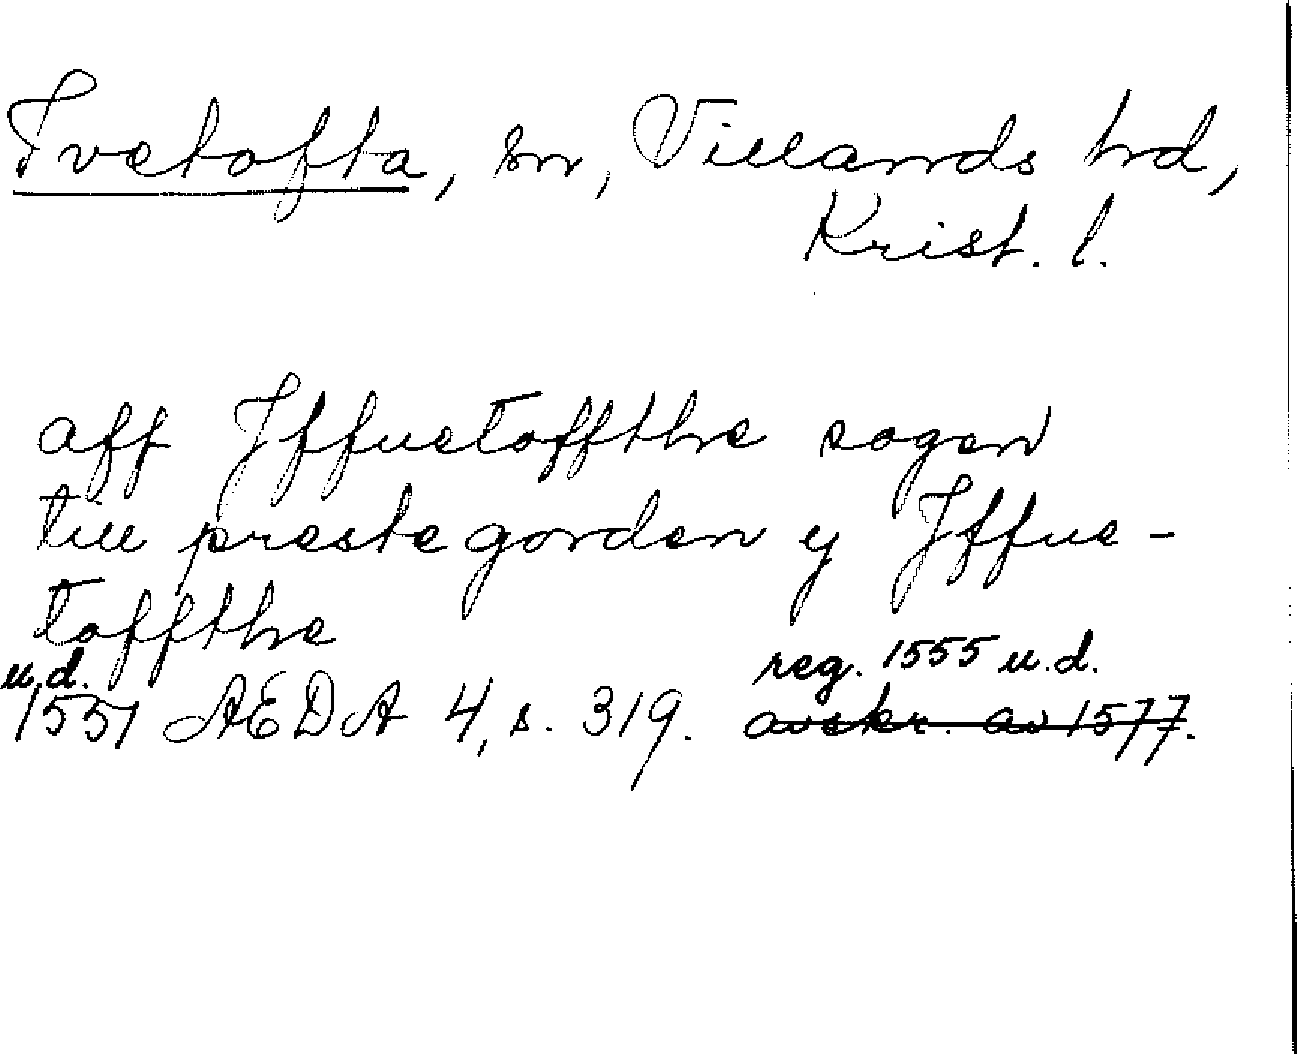 Ivetofta, sn, Villands hd,
Krist. l.
aff Jffuetoffthe sogen
till prestegorden y Jffue-
toffthe
u.d. reg. 1555 u.d.
1551 AEDA 4, s. 319. avskr. av 1577.